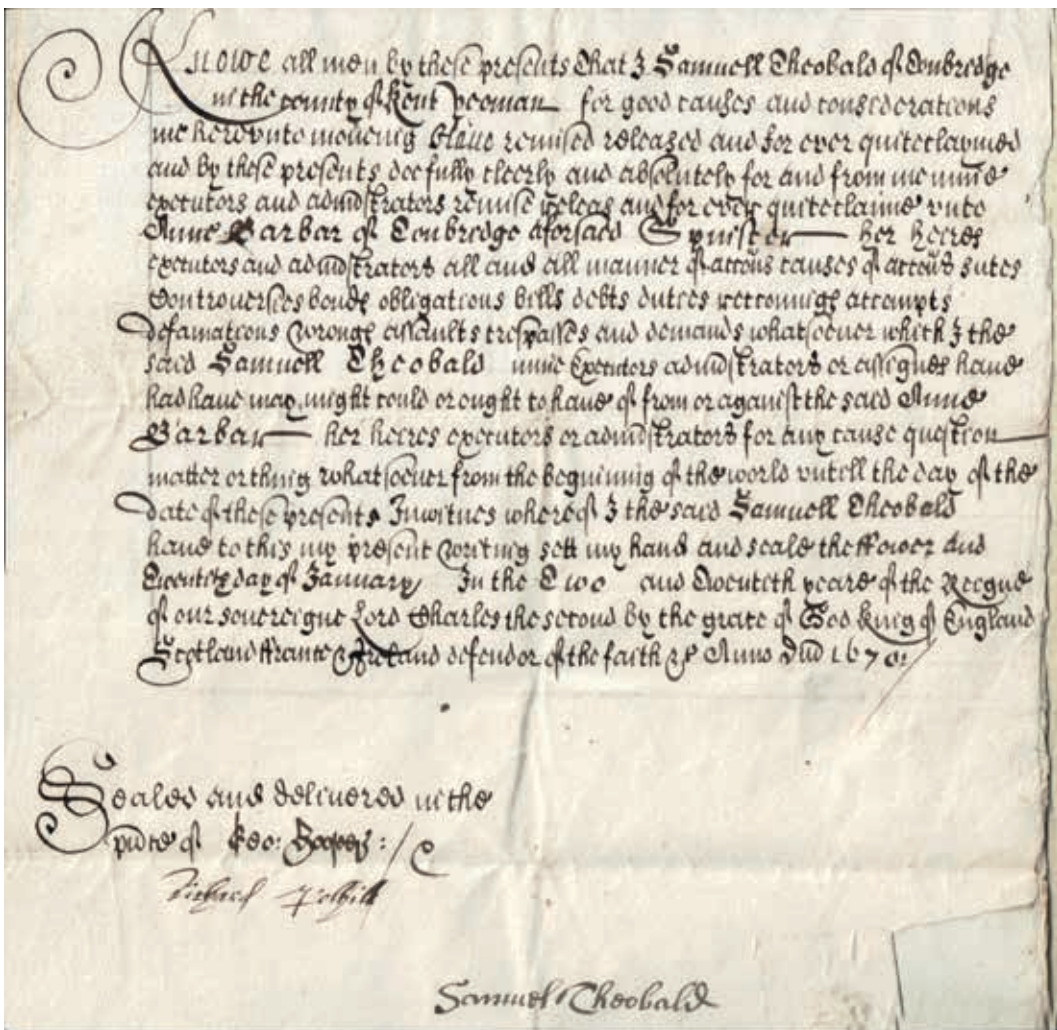 Knowe all men by these presents that I Samuell Theobald of Tonbredge
in the county of Kent Yeoman for good causes and considerations
me herevnto moveing have remised released and for ever quiteclaymed
and by these presents doe fully cleerly and absolutely for and from me mine
executors and admistrators remise releas and for ever quiteclaime vnto
Anne Barbar of Tonbredge aforsaied Spinster her heires
executors and admistrators all and all manner of accons causes of accons sutes
Controversies bonds obligations bills debts duties reconings attempts
defamations wrongs assaults trespasses and demands whatsoever which I the
said Samuell Theobald mine Executors admistrators or assignes have
had have may might could or ought to have of from or against the said Anne
Barbar her heires executors or admistrators for any cause question
matter or thing whatsoever from the beginning of the world vntill the day of the
date of these presents In witnes whereof I the said Samuell Theobald
have to this my present writing sett my hand and seale the ffower and
Twentith day of January In the Two and Twentith yeare of the Reigne
of our sovereigne Lord Charles the second by the grace of God King of England
Scotland ffrance & Ireland defendor of the faith &c Anno Dni 1670:
Sealed and delivered in the
pnce of Geo: Hooper :/
Richard Polhill
Samuel Theobald